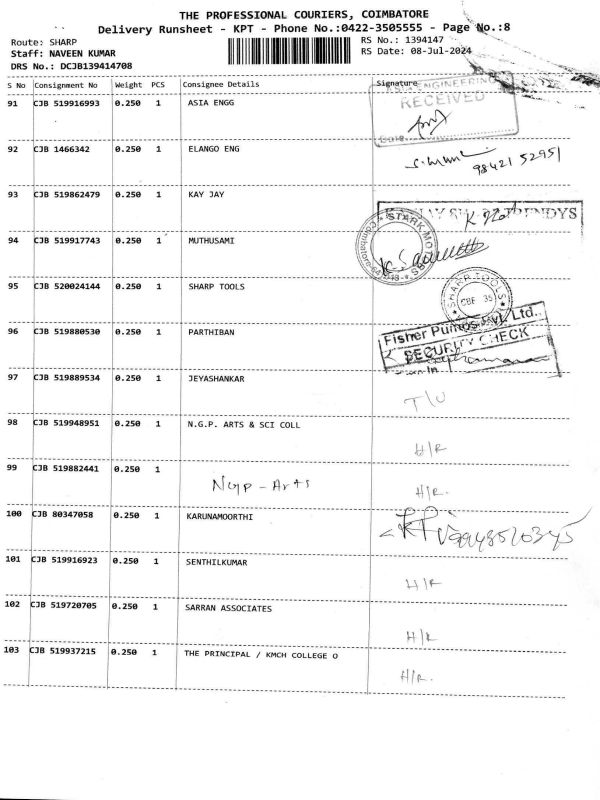 THE PROFESSIONAL COURIERS, COIMBATORE
Delivery Runsheet - KPT - Phone No.:0422-3505555 - Page No.:8
Route: SHARP
RS No.: 1394147
Staff: NAVEEN KUMAR
RS Date: 08-Jul-2024
DRS No.: DCJB139414708
S No Consignment No Weight PCS Consignee Details Signature
91 CJB 519916993 0.250 1 ASIA ENGG
ENGINEERING
RECEIVED
Date
92 CJB 1466342 0.250 1 ELANGO ENG
98421 52951
93 CJB 519862479 0.250 1 KAY JAY
94 CJB 519917743 0.250 1 MUTHUSAMI
STARK MOTORS
95 CJB 520024144 0.250 1 SHARP TOOLS
SHARP TOOLS
CBE 35
96 CJB 519880530 0.250 1 PARTHIBAN
Fisher Pumps Pvt. Ltd.
SECURITY CHECK
In
97 CJB 519889534 0.250 1 JEYASHANKAR
T/U
98 CJB 519948951 0.250 1 N.G.P. ARTS & SCI COLL
H/R
99 CJB 519882441 0.250 1
NGP - Arts H/R.
100 CJB 80347058 0.250 1 KARUNAMOORTHI
101 CJB 519916923 0.250 1 SENTHILKUMAR
H/R
102 CJB 519720705 0.250 1 SARRAN ASSOCIATES
H/R
103 CJB 519937215 0.250 1 THE PRINCIPAL / KMCH COLLEGE O
H/R.